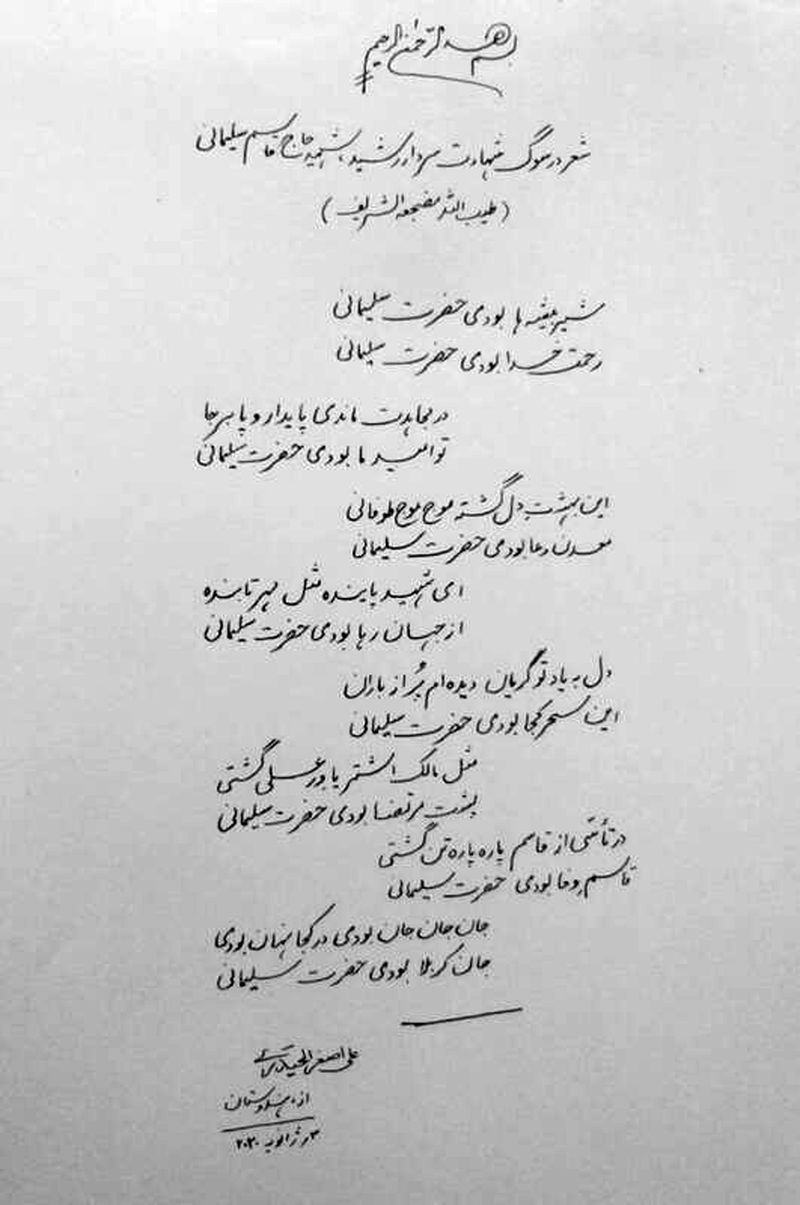 بسم الله الرحمن الرحیم
شعر در سوگ شهادت سردار رشید، شهید حاج قاسم سلیمانی
(طیب الله مضجعه الشریف)
شیر بیشه ها بودی حضرت سلیمانی
رحمت خدا بودی حضرت سلیمانی
در مجاهدت ماندی پایدار و پا برجا
تو امید ما بودی حضرت سلیمانی
این بهشت دل گشته موج موج طوفانی
معدن دعا بودی حضرت سلیمانی
ای شهید پاینده مثل مهر تابنده
از جهان رها بودی حضرت سلیمانی
دل به یاد تو گریان دیده ام پُر از باران
این سحر کجا بودی حضرت سلیمانی
مثل مالک اشتر یاور علی گشتی
پشت مرتضا بودی حضرت سلیمانی
در تأسّی از قاسم پاره پاره تن گشتی
قاسم وفا بودی حضرت سلیمانی
جان جان جان بودی در کجا نهان بودی
جان کربلا بودی حضرت سلیمانی
علی اصغر الحیدری
از هندوستان
۳ ژانویه ۲۰۲۰